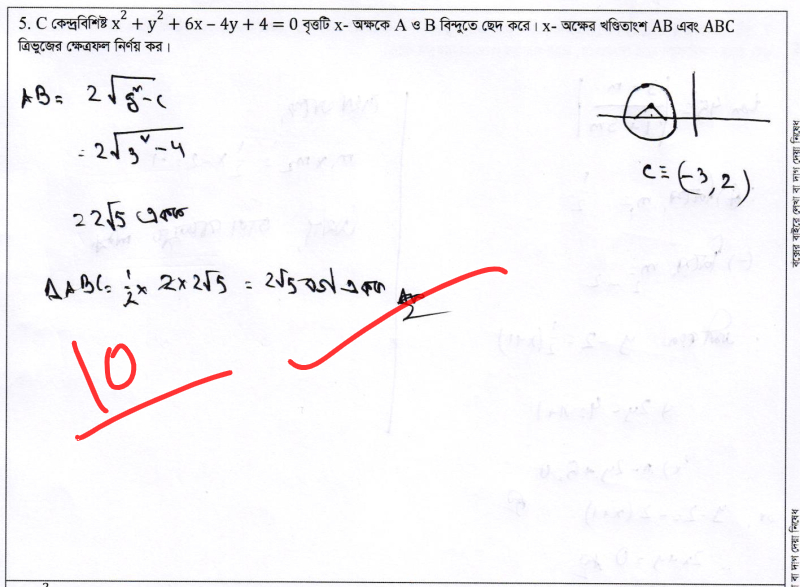 5. C কেন্দ্রবিশিষ্ট x² + y² + 6x − 4y + 4 = 0 বৃত্তটি x- অক্ষকে A ও B বিন্দুতে ছেদ করে। x- অক্ষের খণ্ডিতাংশ AB এবং ABC
ত্রিভুজের ক্ষেত্রফল নির্ণয় কর।
AB = 2√(g² - c)
= 2√(3² - 4)
= 2√5 একক
C ≡ (-3, 2)
ΔABC = 1/2 × 2 × 2√5 = 2√5 বর্গ একক
10
বক্সের বাইরে লেখা বা দাগ দেয়া নিষেধ
বা দাগ দেয়া নিষেধ